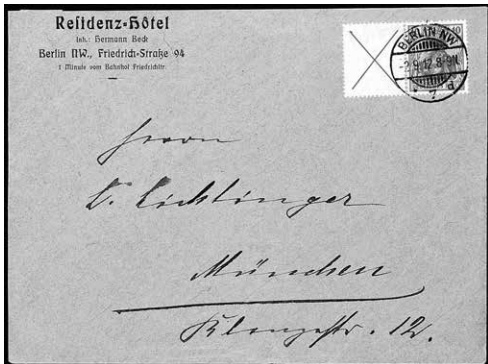 Residenz=Hôtel
Inh.: Hermann Beck
Berlin NW., Friedrich-Straße 94
1 Minute vom Bahnhof Friedrichstr.
10
BERLIN NW
-2.9.12.8-9N.
* 7 d
Herrn
L. Lichtinger
München
Klenzestr. 12.